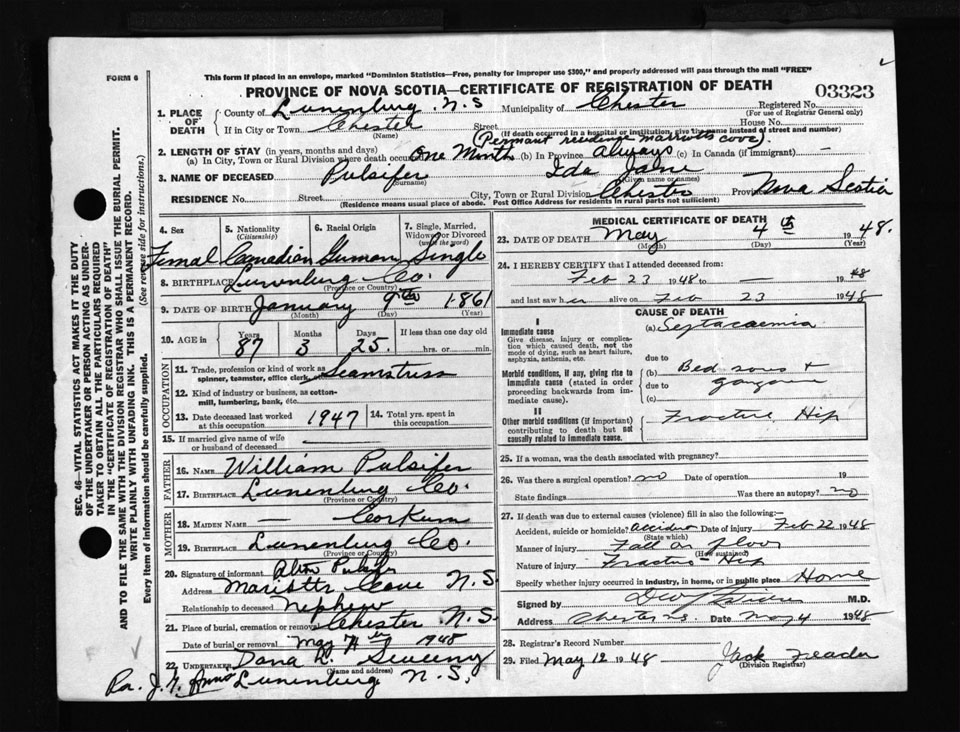 FORM 6
This form if placed in an envelope, marked "Dominion Statistics—Free, penalty for improper use $300," and properly addressed will pass through the mail "FREE"
PROVINCE OF NOVA SCOTIA—CERTIFICATE OF REGISTRATION OF DEATH
03323
1. PLACE OF DEATH County of Lunenburg N.S Municipality of Chester Registered No.
(For use of Registrar General only)
If in City or Town Chester Street House No.
(Name) (If death occurred in a hospital or institution, give the name instead of street and number)
(Permant residence Marriotts Cove)
2. LENGTH OF STAY (in years, months and days)
(a) In City, Town or Rural Division where death occurred One Month (b) In Province Always (c) In Canada (if immigrant) —
3. NAME OF DECEASED Pulsifer Ida Jane
(Surname) (Given name or names)
RESIDENCE No. Street City, Town or Rural Division Chester Province Nova Scotia
(Residence means usual place of abode. Post Office Address for residents in rural parts not sufficient)
4. Sex 5. Nationality (Citizenship) 6. Racial Origin 7. Single, Married, Widowed or Divorced (write the word)
Femal Canadian German Single
8. BIRTHPLACE Lunenburg Co.
(Province or Country)
9. DATE OF BIRTH January 9th 1861
(Month) (Day) (Year)
10. AGE in Years Months Days If less than one day old
87 3 25. hrs. or min.
OCCUPATION
11. Trade, profession or kind of work as spinner, teamster, office clerk, etc. Seamstress
12. Kind of industry or business, as cotton-mill, lumbering, bank, etc.
13. Date deceased last worked at this occupation 1947 14. Total yrs. spent in this occupation
15. If married give name of wife or husband of deceased —
FATHER
16. NAME William Pulsifer
17. BIRTHPLACE Lunenburg Co.
(Province or Country)
MOTHER
18. MAIDEN NAME — Corkum
19. BIRTHPLACE Lunenburg Co.
(Province or Country)
20. Signature of informant Pulsifer
Address Mariotts Cove N.S.
Relationship to deceased Nephew
21. Place of burial, cremation or removal Chester N.S.
Date of burial or removal May 7th 1948
22. UNDERTAKER Dana L. Sweeny
(Name and address)
Per. J. Lunenburg N.S.
MEDICAL CERTIFICATE OF DEATH
23. DATE OF DEATH May 4th 1948.
(Month) (Day) (Year)
24. I HEREBY CERTIFY that I attended deceased from:
Feb 23 1948 to — 1948
and last saw her alive on Feb 23 1948
CAUSE OF DEATH
I
Immediate cause
Give disease, injury or complication which caused death, not the mode of dying, such as heart failure, asphyxia, asthenia, etc.
(a) Septacaemia
due to
Morbid conditions, if any, giving rise to immediate cause (stated in order proceeding backwards from immediate cause).
(b) Bed sores +
due to
(c)
II
Other morbid conditions (if important) contributing to death but not causally related to immediate cause.
Fracture Hip
25. If a woman, was the death associated with pregnancy?
26. Was there a surgical operation? no Date of operation 19
State findings Was there an autopsy? no
27. If death was due to external causes (violence) fill in also the following:—
Accident, suicide or homicide? Date of injury Feb 22 1948
(State which)
Manner of injury Fall on floor
(How sustained)
Nature of injury Hip
Specify whether injury occurred in industry, in home, or in public place Home
Signed by M.D.
Address Chester N.S. Date May 4 1948
28. Registrar's Record Number
29. Filed May 12 1948 Jack
(Division Registrar)
SEC. 46—VITAL STATISTICS ACT MAKES IT THE DUTY
OF THE UNDERTAKER OR PERSON ACTING AS UNDER-
TAKER TO OBTAIN ALL THE PARTICULARS REQUIRED
IN THE "CERTIFICATE OF REGISTRATION OF DEATH"
AND TO FILE THE SAME WITH THE DIVISION REGISTRAR WHO SHALL ISSUE THE BURIAL PERMIT.
WRITE PLAINLY WITH UNFADING INK. THIS IS A PERMANENT RECORD.
Every item of information should be carefully supplied. (See reverse side for instructions.)